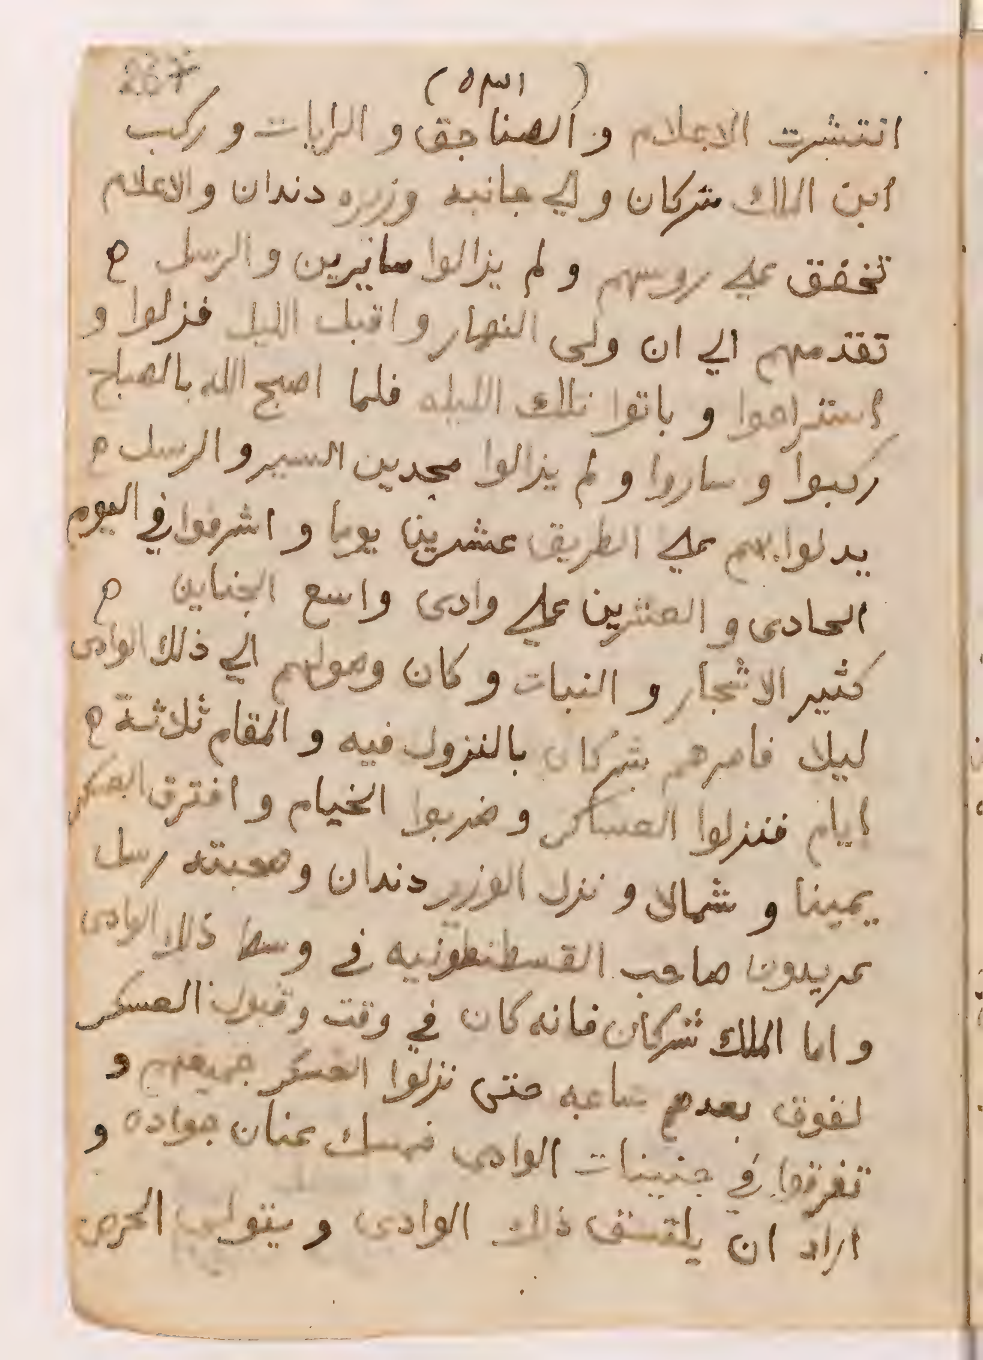 267
( ٥٣١ )
انتشرت الاعلام و الصناجق و الرايات و ركب
ابن الملك شركان و الي جانبه وزيره دندان والاعلام
تخفق علي روسهم و لم يزالوا سائرين و الرسل
تقدمهم الي ان ولى النهار و اقبل الليل فنزلوا و
استراحوا و باتوا تلك الليله فلما اصبح الله بالصباح
ركبوا و ساروا و لم يزالوا مجدين السير و الرسل
يدلوا بهم علي الطريق عشرين يوما و اشرفوا في اليوم
الحادى و العشرين علي وادى واسع الجناين
كثير الاشجار و النبات و كان وصولهم الي ذلك الوادى
ليلا فامرهم شركان بالنزول فيه و المقام ثلاثة
ايام فنزلوا العساكر و ضربوا الخيام و افترق العسكر
يمينا و شمالا و نزل الوزير دندان و صحبته رسل
عريدون صاحب القسطنطونيه في وسط ذلك الوادى
و اما الملك شركان فانه كان في وقت وقبول العسكر
لفوق بعدهم ساعه حتى نزلوا العسكر جميعهم و
تفرقوا في جنينات الوادى فمسك عنان جواده و
اراد ان يلتسق ذلك الوادى و يتولى الحرص